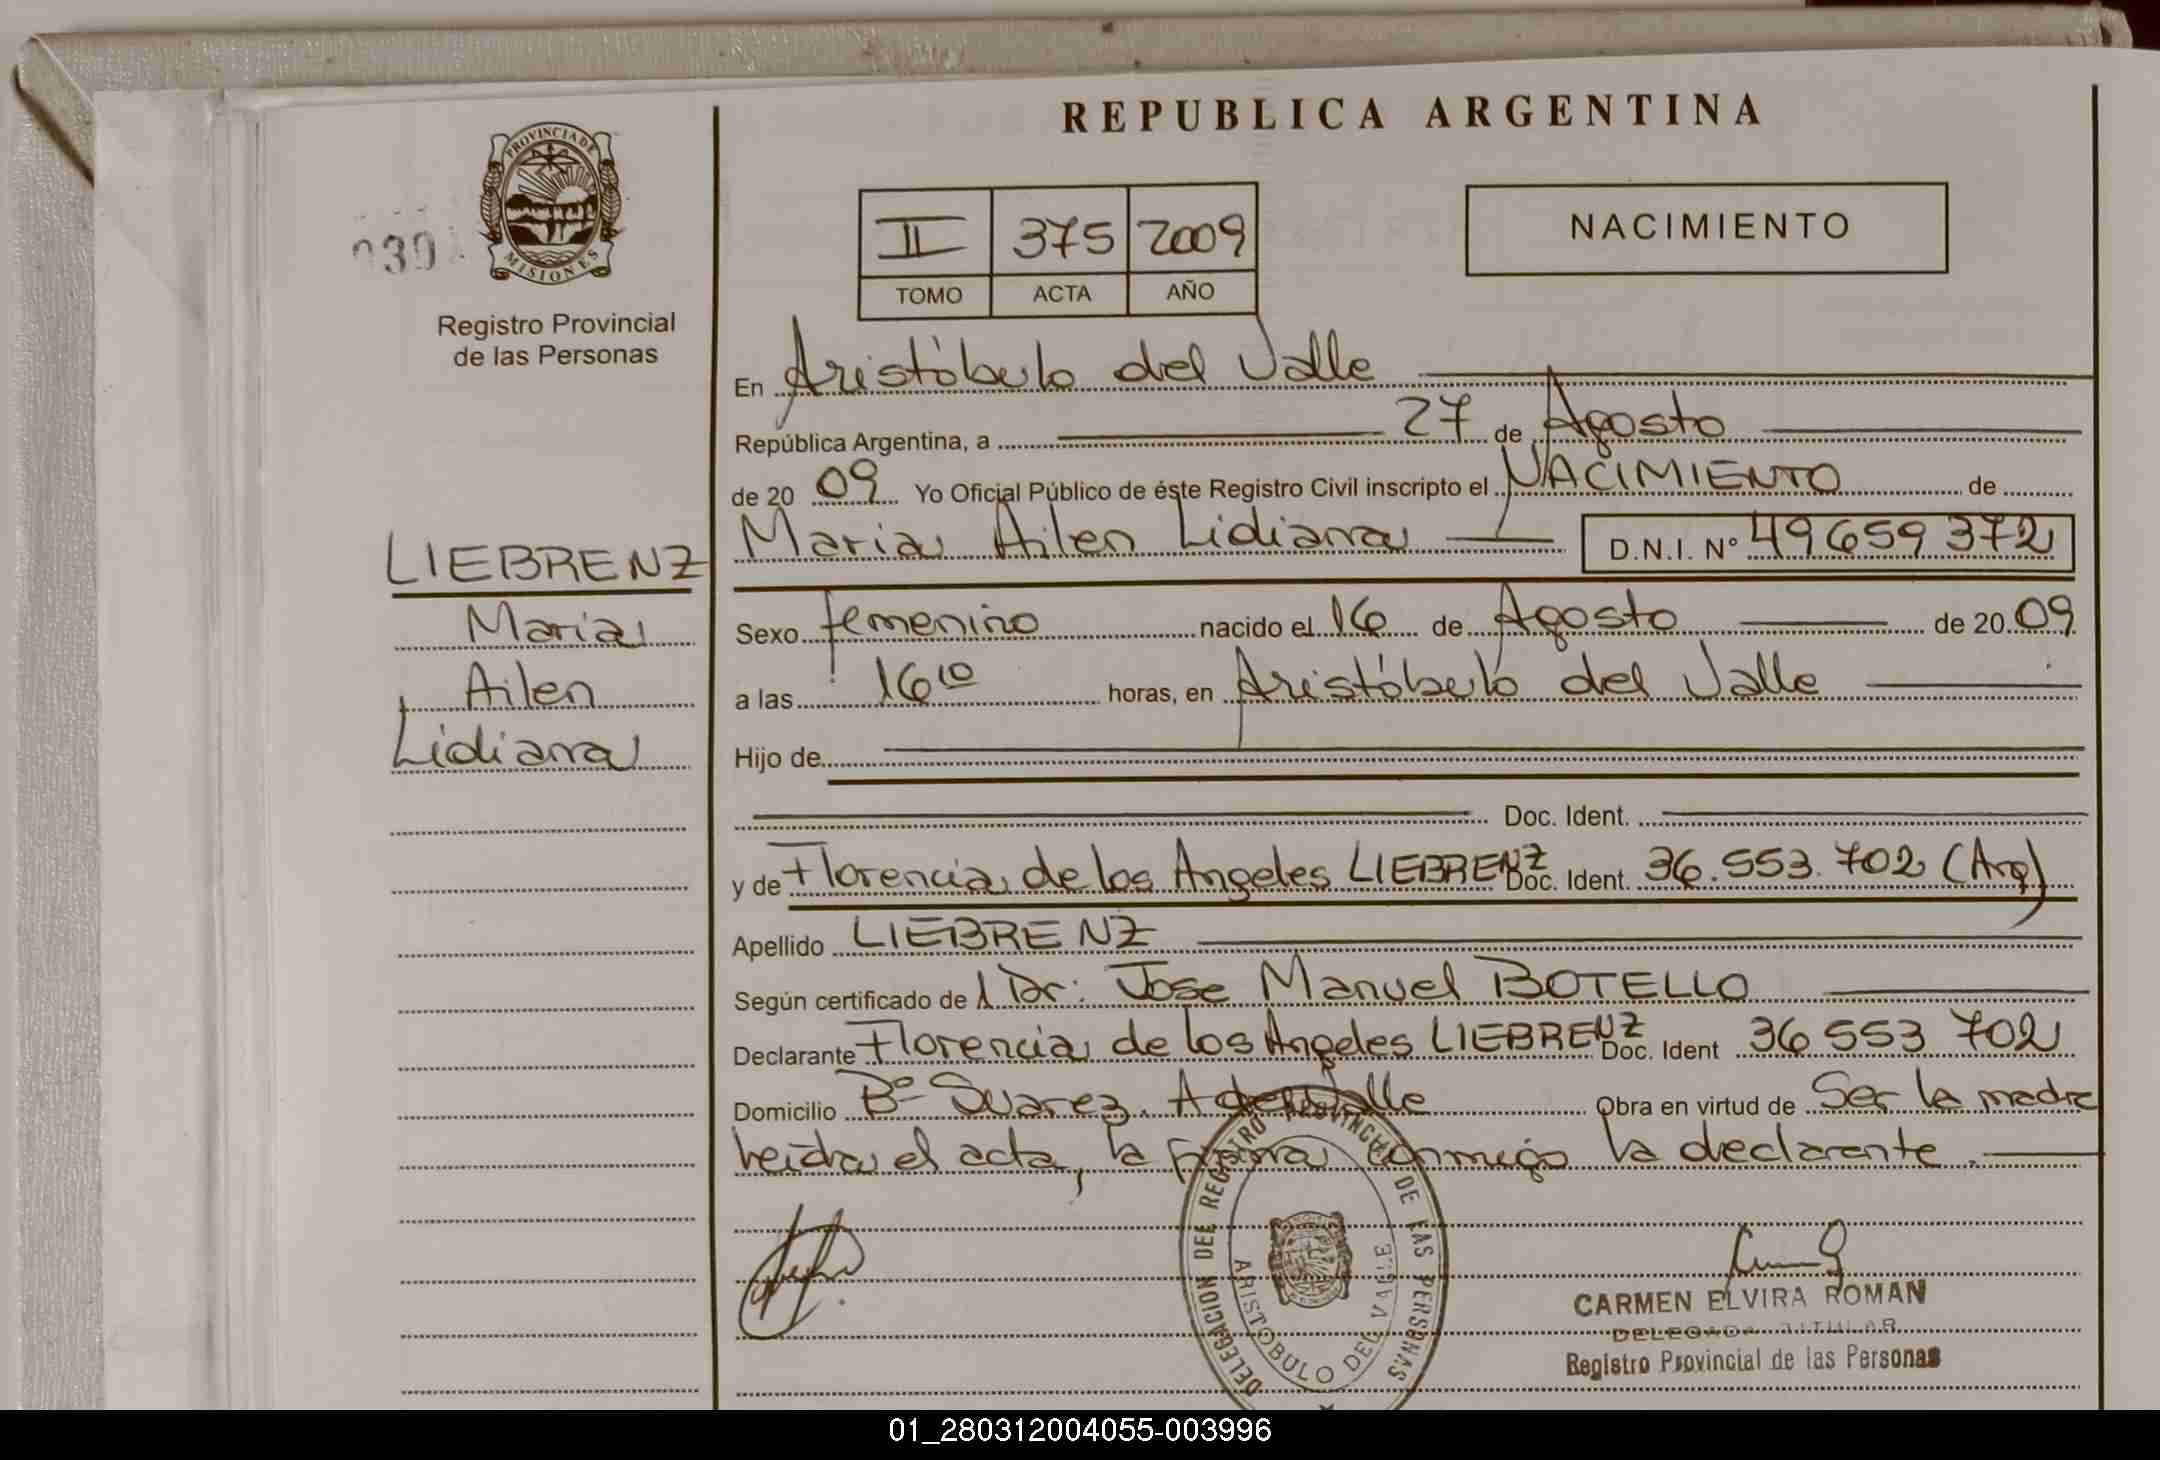 REPUBLICA ARGENTINA
PROVINCIA DE
MISIONES
Registro Provincial
de las Personas
II 375 2009
TOMO ACTA AÑO
NACIMIENTO
En Aristóbulo del Valle
República Argentina, a 27 de Agosto
de 20 09 Yo Oficial Público de éste Registro Civil inscripto el NACIMIENTO de
Maria Ailen Lidiana D.N.I. N° 49659372
LIEBRENZ
Maria
Ailen
Lidiana
Sexo femenino nacido el 16 de Agosto de 20 09
a las 16 10 horas, en Aristóbulo del Valle
Hijo de
Doc. Ident.
y de Florencia de los Angeles LIEBRENZ Doc. Ident. 36.553.702 (Arg)
Apellido LIEBRENZ
Según certificado de Dr: Jose Manuel BOTELLO
Declarante Florencia de los Angeles LIEBRENZ Doc. Ident 36 553 702
Domicilio Bº Suarez. A del Valle Obra en virtud de Ser la madre
leida el acta, la firma conmigo la declarante.
DELEGACION DEL REGISTRO PROVINCIAL DE LAS PERSONAS
ARISTOBULO DEL VALLE
CARMEN ELVIRA ROMAN
DELEGADA TITULAR
Registro Provincial de las Personas
01_280312004055-003996